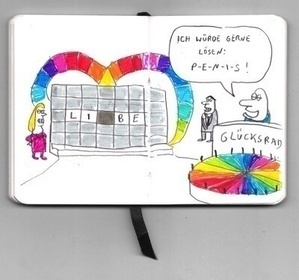 ICH WÜRDE GERNE
LÖSEN:
P-E-N-I-S!
L I BE
GLÜCKSRAD